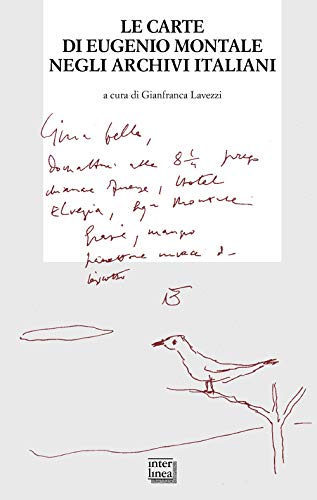 LE CARTE
DI EUGENIO MONTALE
NEGLI ARCHIVI ITALIANI
a cura di Gianfranca Lavezzi
Gina bella,
Domattina alle 8 ¼ prego
chiamare Firenze, Hotel
Elvezia, Sga Montale
Grazie, mangio
invece di
inter
linea